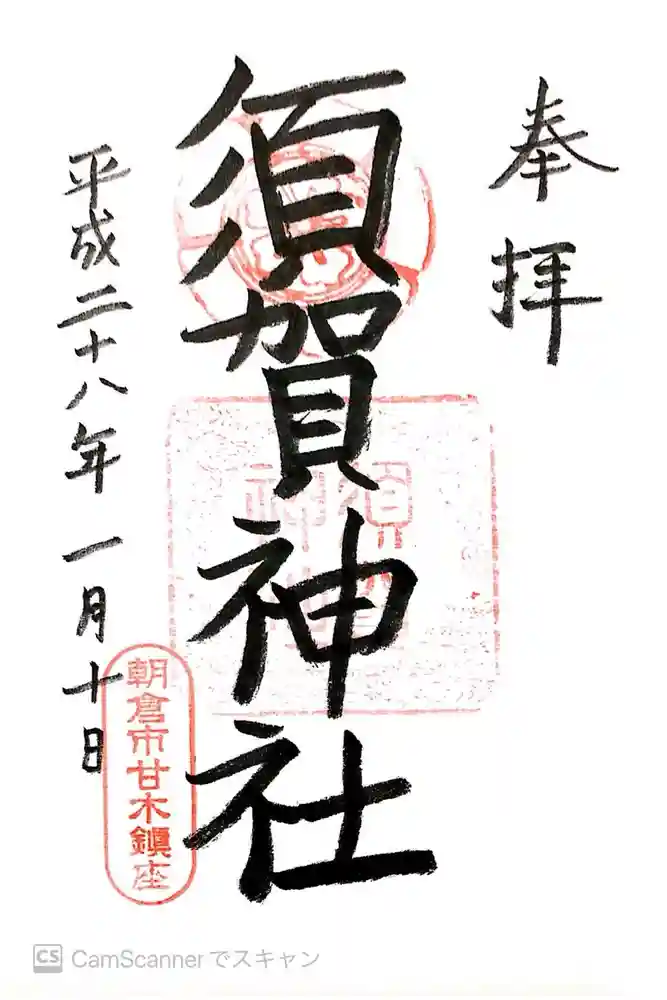 奉拝
須賀神社
平成二十八年一月十日
須賀神社
朝倉市甘木鎮座
CS CamScanner でスキャン